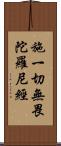 施一切無畏
陀羅尼經